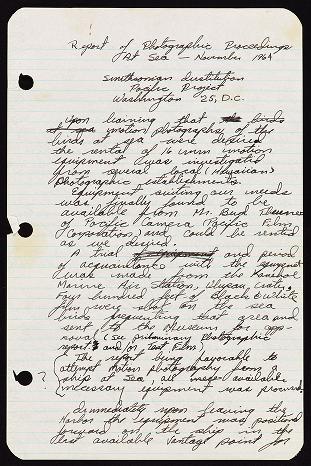 Report of Photographic Proceedings
At Sea — November 1964
Smithsonian Institution
Pacific Project
Washington 25, D.C.
Upon learning that the birds
at sea motion photographs of the
birds at sea were desired
the rental of 16 mm motion
equipment was investigated
from several local (Hawaiian)
photographic establishments.
Equipment suiting our needs
was finally found to be
available from Mr. Bud
of Pacific Camera (Pacific Film
Corporation) and could be rented
as we desired.
A trial equipment and period
of acquaintance with the equipment
was made from the Kaneohe
Marine Air Station, Ulupau Crater.
Four hundred feet of black & white
film were shot on the sea
birds frequenting that area and
sent to the Museum for app-
roval (see preliminary photographic
report and/or test film)
The report being favorable to
attempt motion photography from a
ship at sea, all available
necessary equipment was procured.
?
Immediately upon leaving the
Harbor the equipment was positioned
forward on the ship in the
best available vantage point for